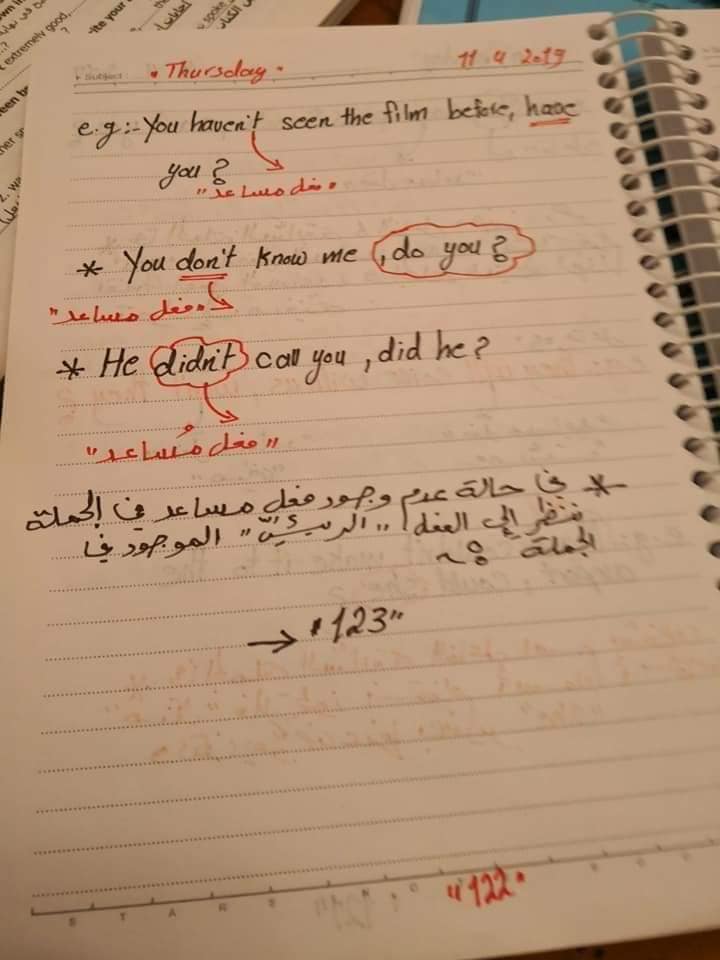 Subject: "Thursday" 11 4 2019
e.g:- You haven't seen the film before, have
you?
"فعل مساعد"
* You don't know me, do you?
"فعل مساعد"
* He didn't call you, did he?
"فعل مُساعد"
* في حالة عدم وجود فعل مساعد في الجملة
ننظر إلى الفعل "الرئيسيّ" الموجود في
الجملة :~
→ "123"
S T A R S
"122"